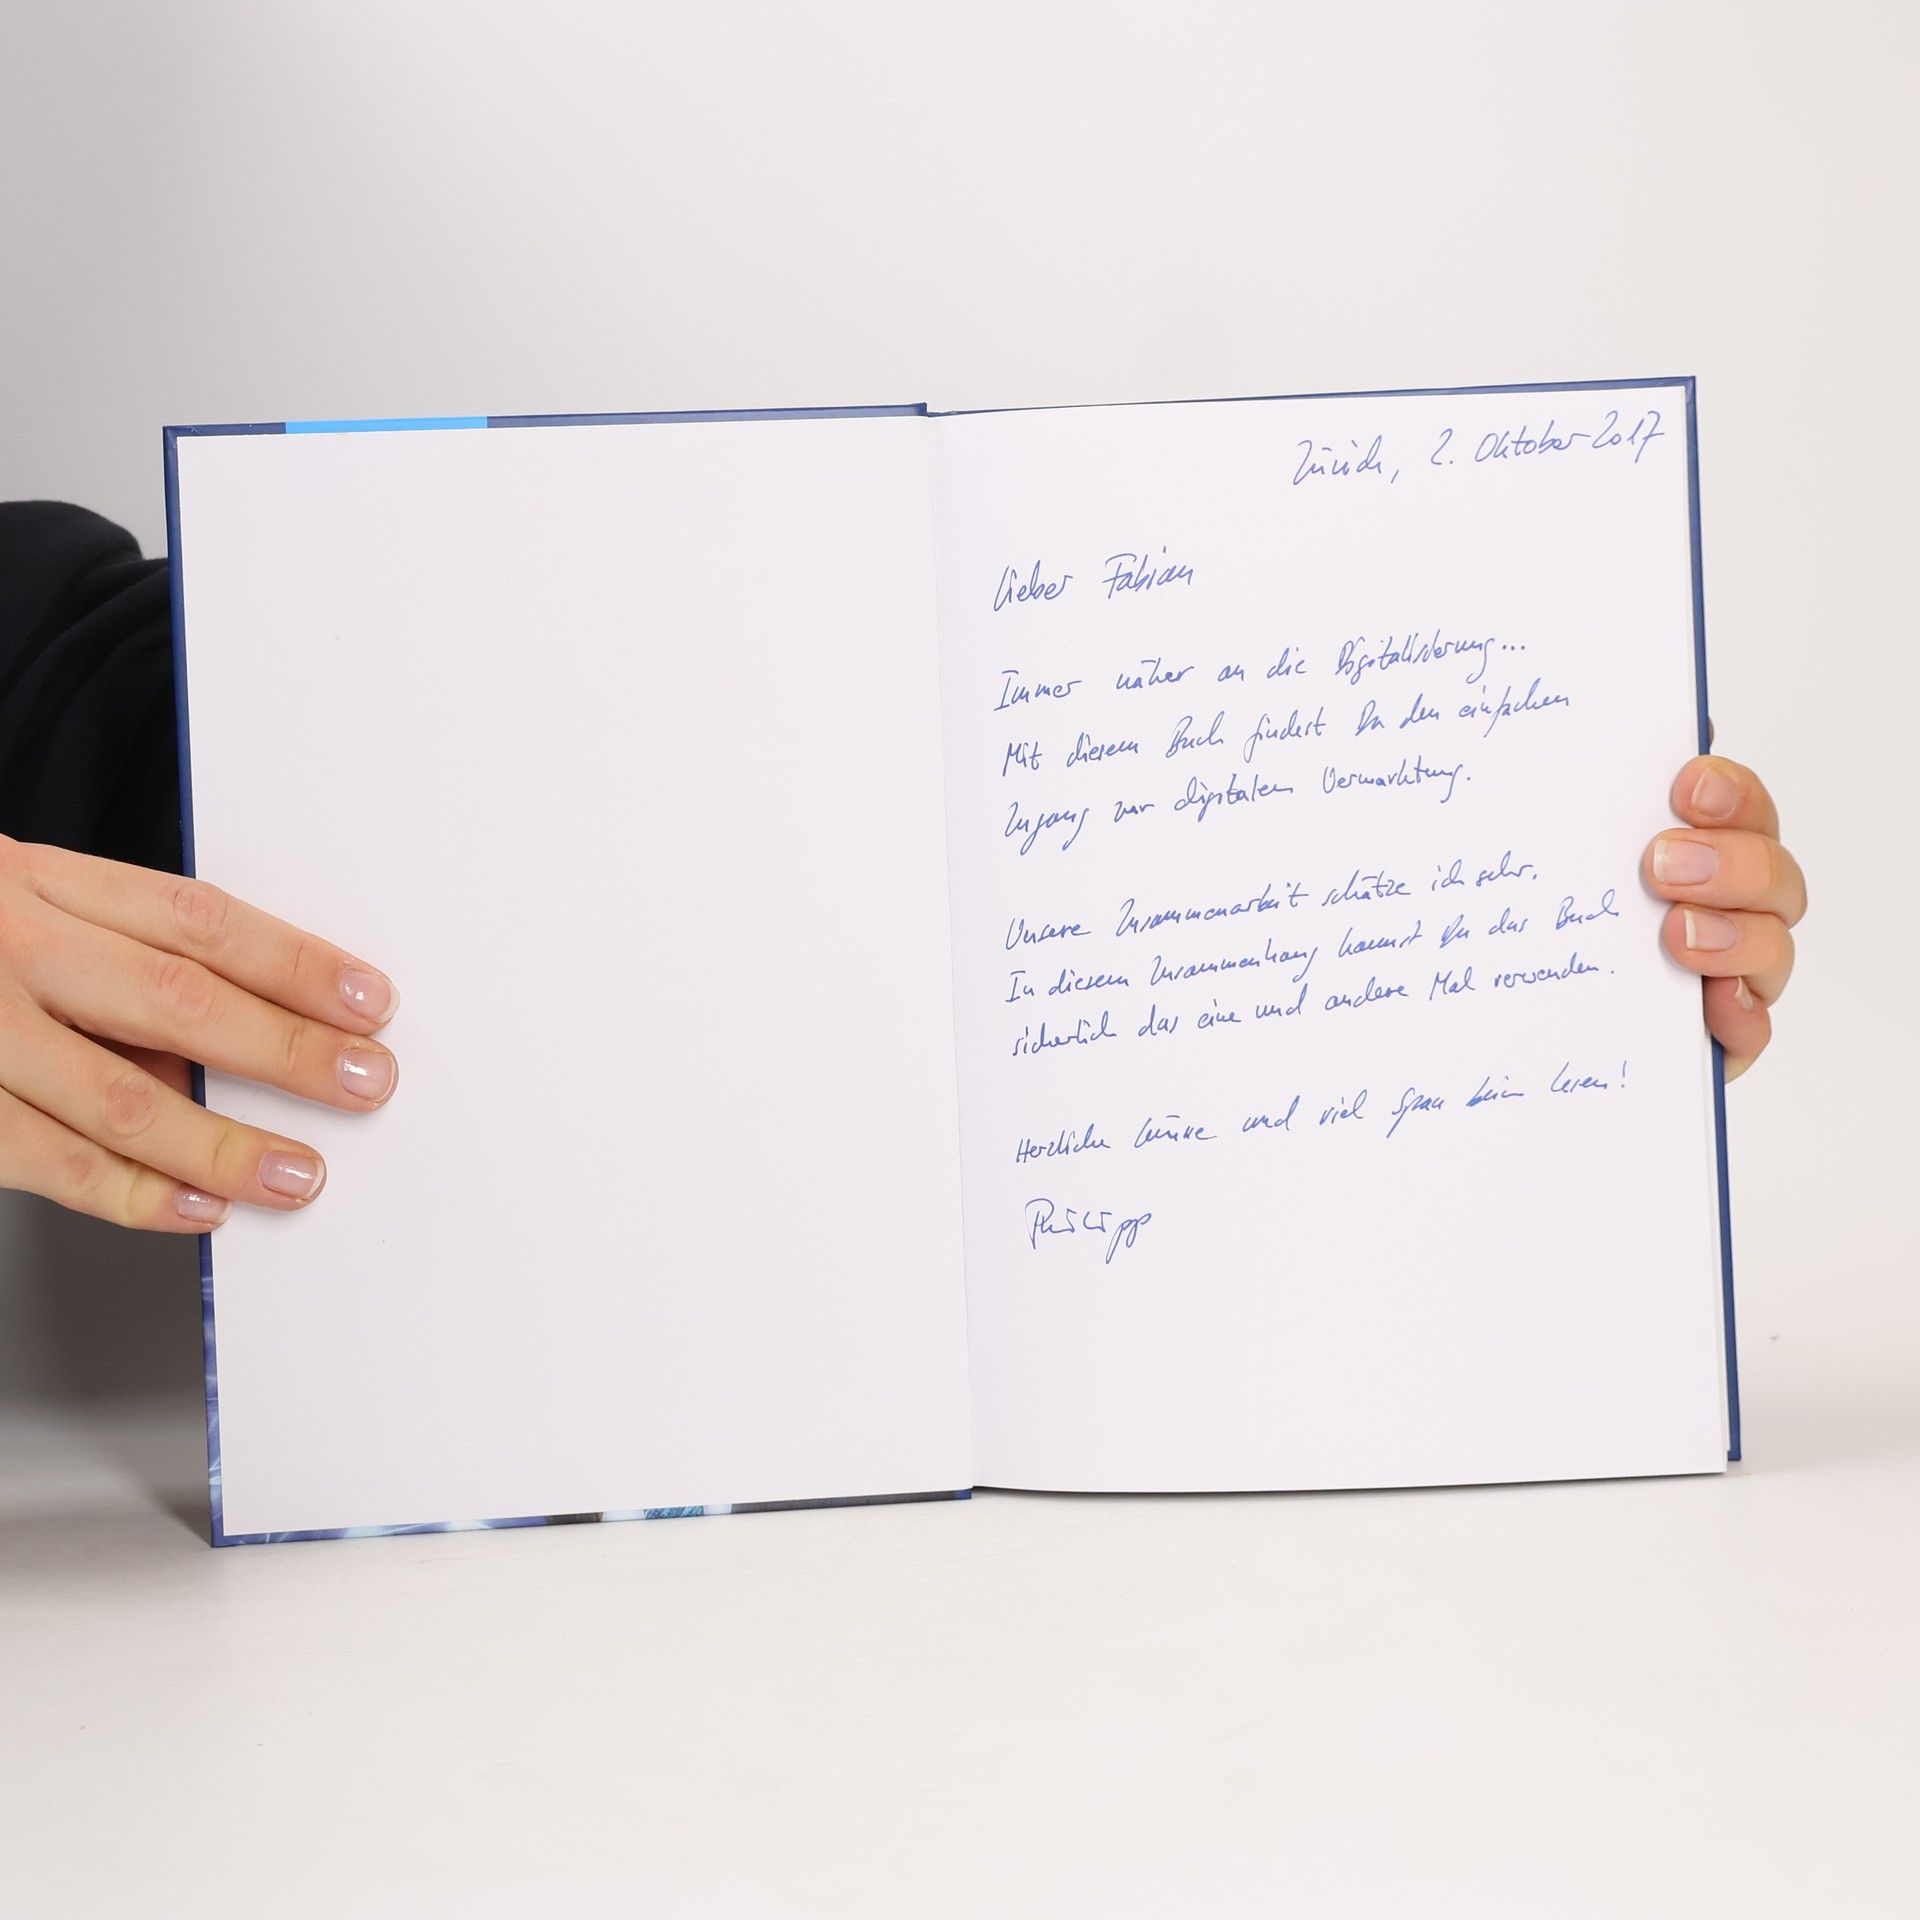 Zürich, 2. Oktober 2017
Lieber Fabian
Immer näher an die Digitalisierung...
Mit diesem Buch findest Du den einfachen
Zugang zur digitalen Vermarktung.
Unsere Zusammenarbeit schätze ich sehr.
In diesem Zusammenhang kannst Du das Buch
sicherlich das eine und andere Mal verwenden.
Herzliche Grüsse und viel Spass beim Lesen!
Philipp